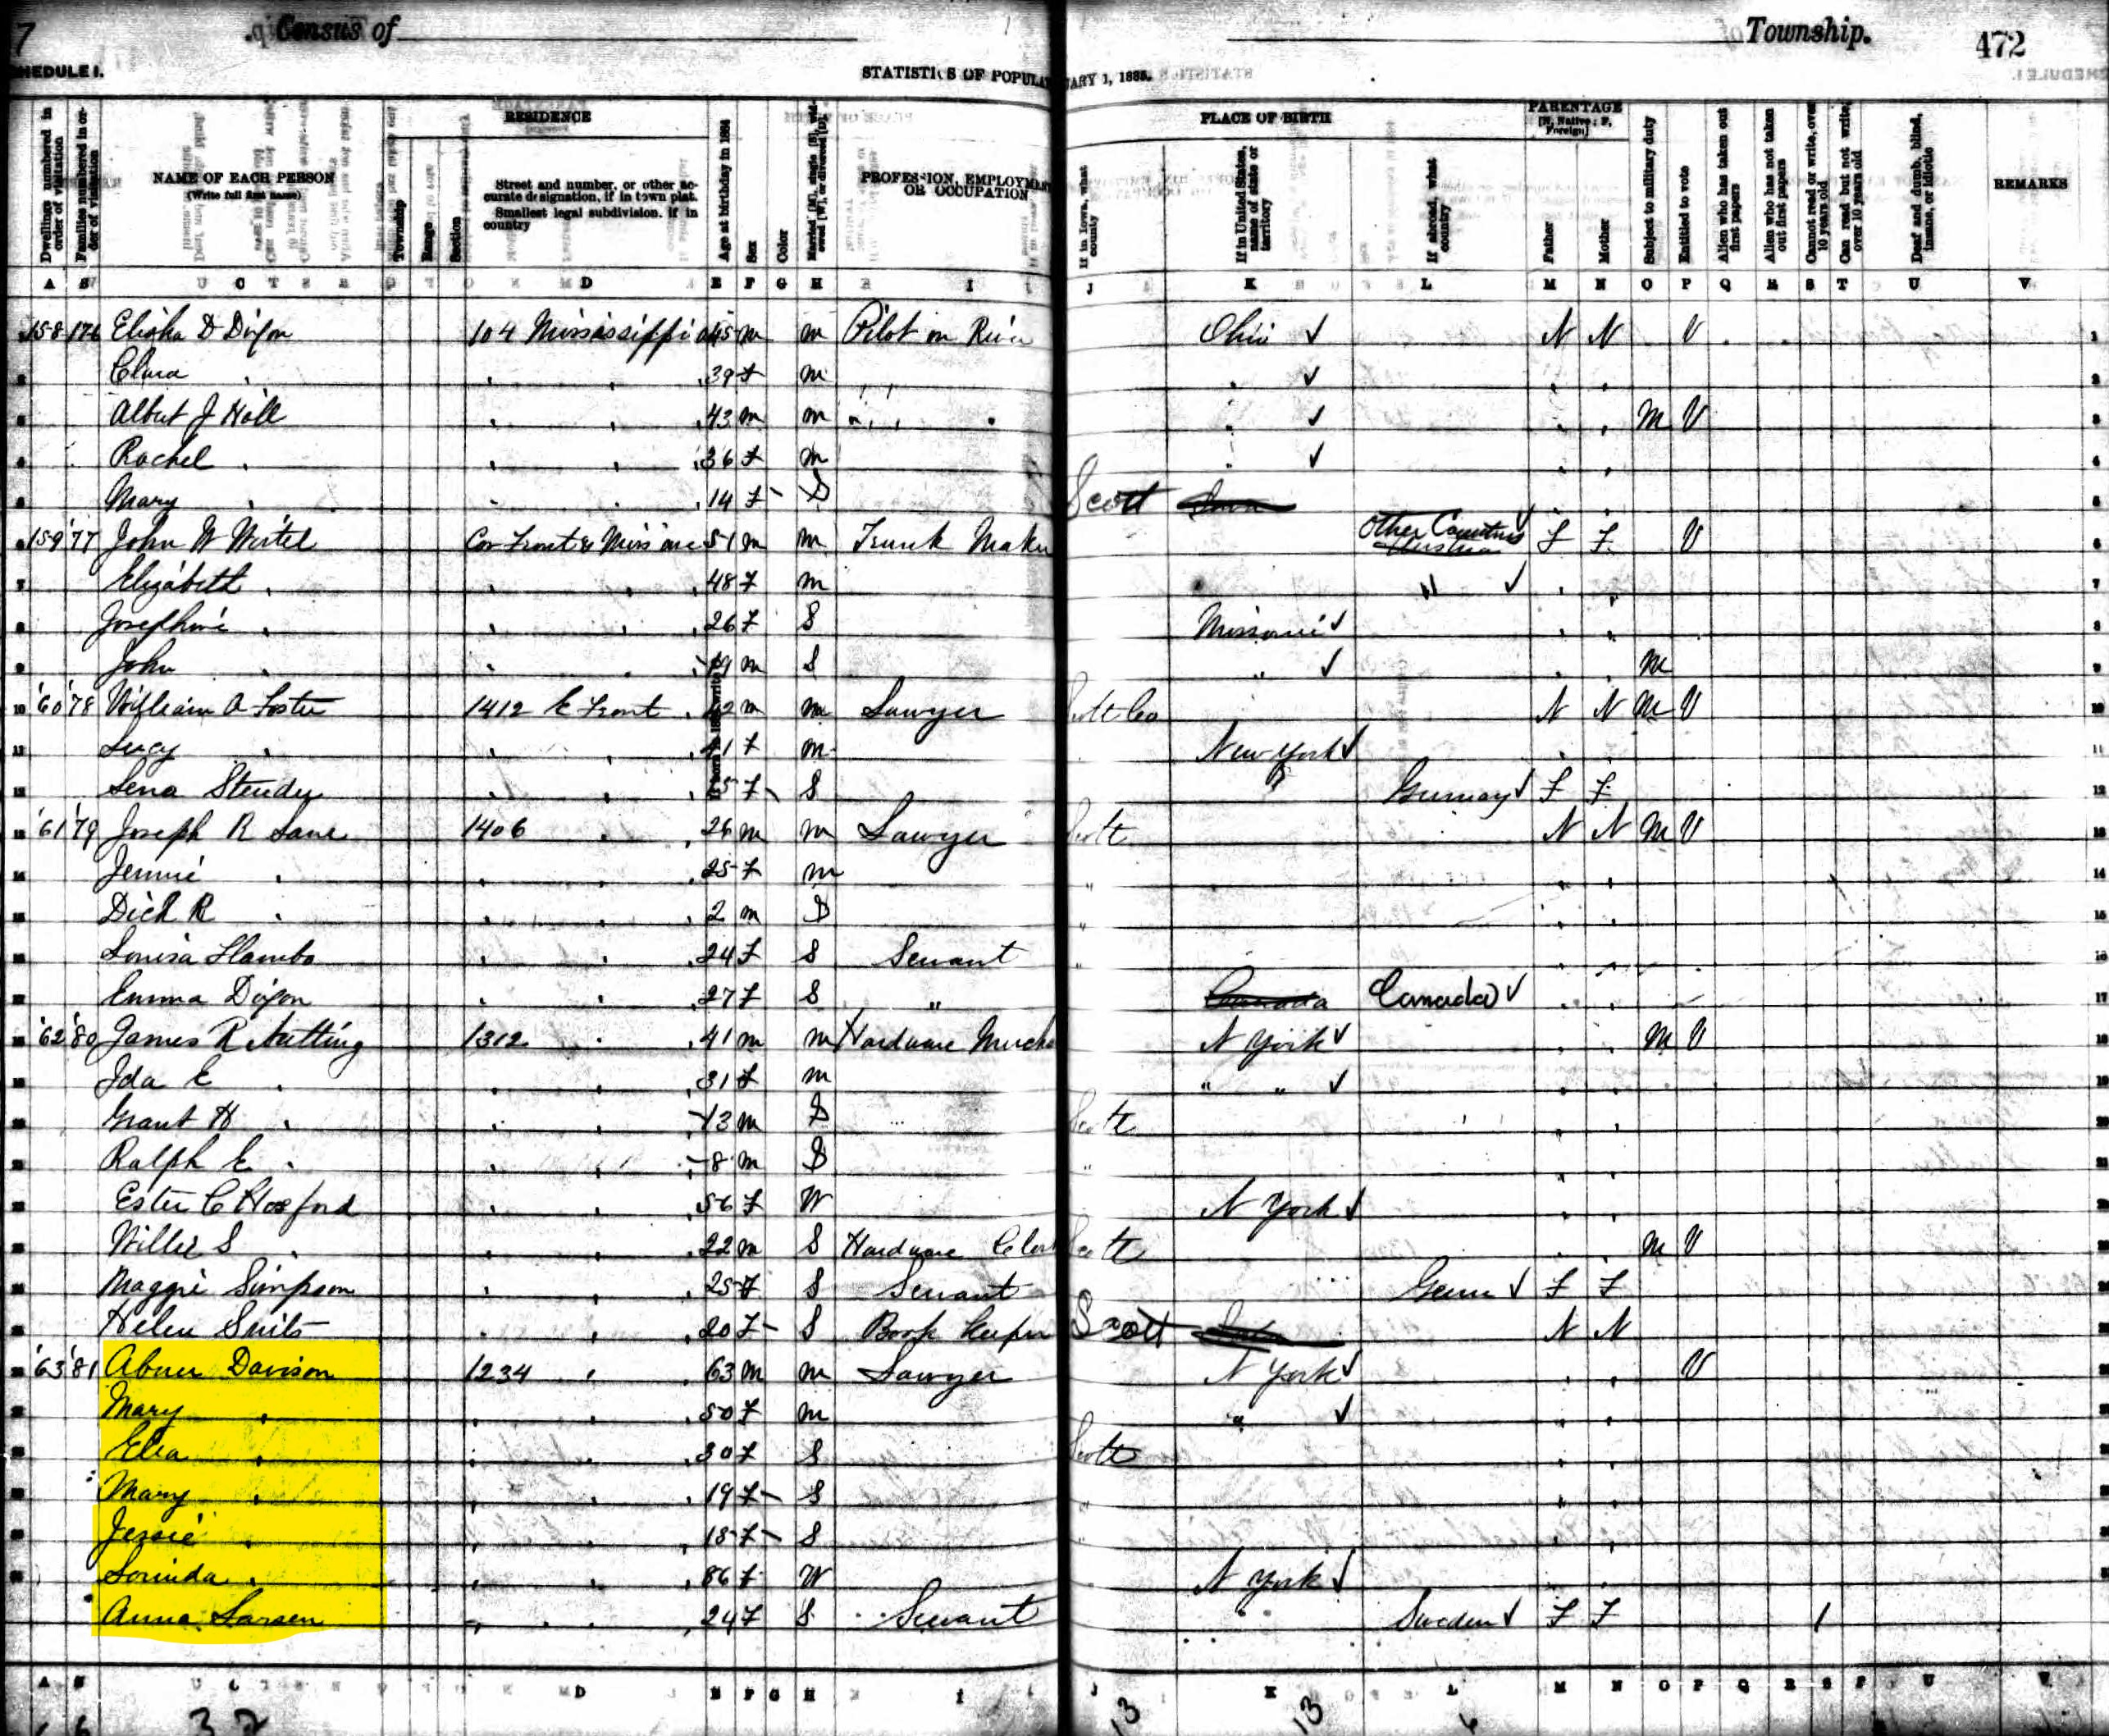 7 Census of Township. 472
SCHEDULE I. STATISTICS OF POPULA ARY 1, 1885.
RESIDENCE PLACE OF BIRTH PARENTAGE [N, Native; F, Foreign]
Dwellings numbered in order of visitation
Families numbered in order of visitation
NAME OF EACH PERSON (Write full first name)
Township
Range
Section
Street and number, or other accurate designation, if in town plat. Smallest legal subdivision, if in country
Age at birthday in 1884
Sex
Color
Married [M], single [S], widowed [W], or divorced [D]
PROFESSION, EMPLOYM OR OCCUPATION
If in Iowa, what county
If in United States, name of state or territory
If abroad, what country
Father
Mother
Subject to military duty
Entitled to vote
Alien who has taken out first papers
Alien who has not taken out first papers
Cannot read or write, over 10 years old
Can read but not write, over 10 years old
Deaf and dumb, blind, insane, or idiotic
REMARKS
A B C D E F G H I J K L M N O P Q R S T U V
158 176 Elisha D Dixon 104 Mississippi 45 m m Pilot on Rive Ohio ✓ N N V 1
Clara " " 39 F m " ✓ " " 2
Albert J Hall " " 43 m m " " " ✓ " " M V 3
Rachel " " " 36 F m " ✓ " " 4
Mary " " " 14 F S Scott " " 5
159 '77 John W Wirtel Cor Front & Miss ave 51 m m Trunk Maker Other Countries ✓ F F V 6
Elizabeth " " " 48 F m " ✓ " " 7
Josephine " " " 26 F S Missouri ✓ " " 8
John " " " 19 m S " ✓ " " M 9
'60 '78 William A Foster 1412 E Front 42 m m Lawyer Scott Co N N M V 10
Lucy " " " 41 F m New York ✓ " " 11
Lena Steuder " " F S Germay ✓ F F 12
'61 '79 Joseph R Lane 1406 " 26 m m Lawyer Scott N N M V 13
Jennie " " " 25 F m " " " 14
Dick R " " " 2 m S " " " 15
Louisa Hambo " " 24 F S Servant " " " 16
Emma Dixon " " 27 F S " Canada Canada ✓ " " 17
'62 '80 James R Nutting 1312 " 41 m m Hardware Mercha N York ✓ " " M V 18
Ida E " " " 31 F m " " ✓ " " 19
Grant H " " " 13 m S Scott " " 20
Ralph E " " " 8 m S " " " 21
Ester C Hosford " " 56 F W N York ✓ " " 22
Willie S " " " 22 m S Hardware Clerk Scott " " M V 23
Maggie Simpson " " 25 F S Servant Germ ✓ F F 24
Helen Smits " " 20 F S Book Keeper Scott N N 25
'63 '81 Abner Davison 1234 " 63 m m Lawyer N York ✓ " " V
Mary " " " 50 F m " ✓ " "
Ella " " " 30 F S Scott " "
Mary " " " 19 F S " " "
Jessie " " " 18 F S " " "
Lorinda " " " 86 F W N York ✓ " "
Anna Larsen " " 24 F S Servant Sweden ✓ F F 1
A B C D E F G H I J K L M N O P Q R S T U V
32 13 13 6